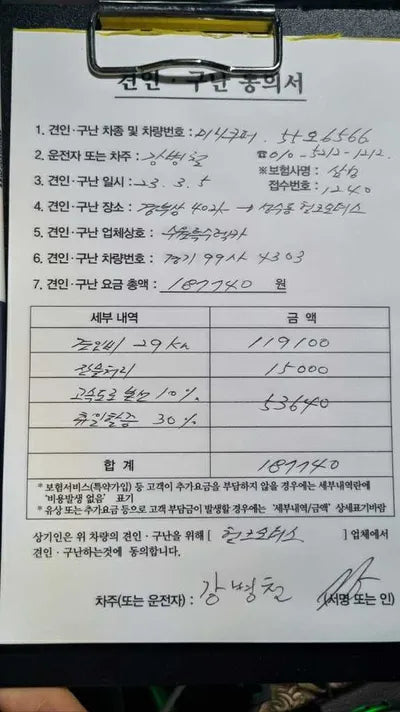 견인 · 구난 동의서
1. 견인·구난 차종 및 차량번호 : 미니쿠퍼. 55오6566
2. 운전자 또는 차주 : 강병철 ☎010-5212-1212
3. 견인·구난 일시 : 23. 3. 5 ※보험사명 : 삼성
접수번호 : 1240
4. 견인·구난 장소 : 경부상 402k → 성수동 헌크모터스
5. 견인·구난 업체상호 :
6. 견인·구난 차량번호 : 경기 99사 4303
7. 견인·구난 요금 총액 : 187740 원
세부 내역 금 액
견인비 29km 119100
잔물처리 15000
고속도로 할증 10% 53640
휴일할증 30%
합 계 187740
* 보험서비스(특약가입) 등 고객이 추가요금을 부담하지 않을 경우에는 세부내역란에
'비용발생 없음' 표기
* 유상 또는 추가요금 등으로 고객 부담금이 발생할 경우에는 '세부내역/금액' 상세표기바람
상기인은 위 차량의 견인·구난을 위해 [ 헌크모터스 ] 업체에서
견인·구난하는것에 동의합니다.
차주(또는 운전자) : 강병철 (서명 또는 인)